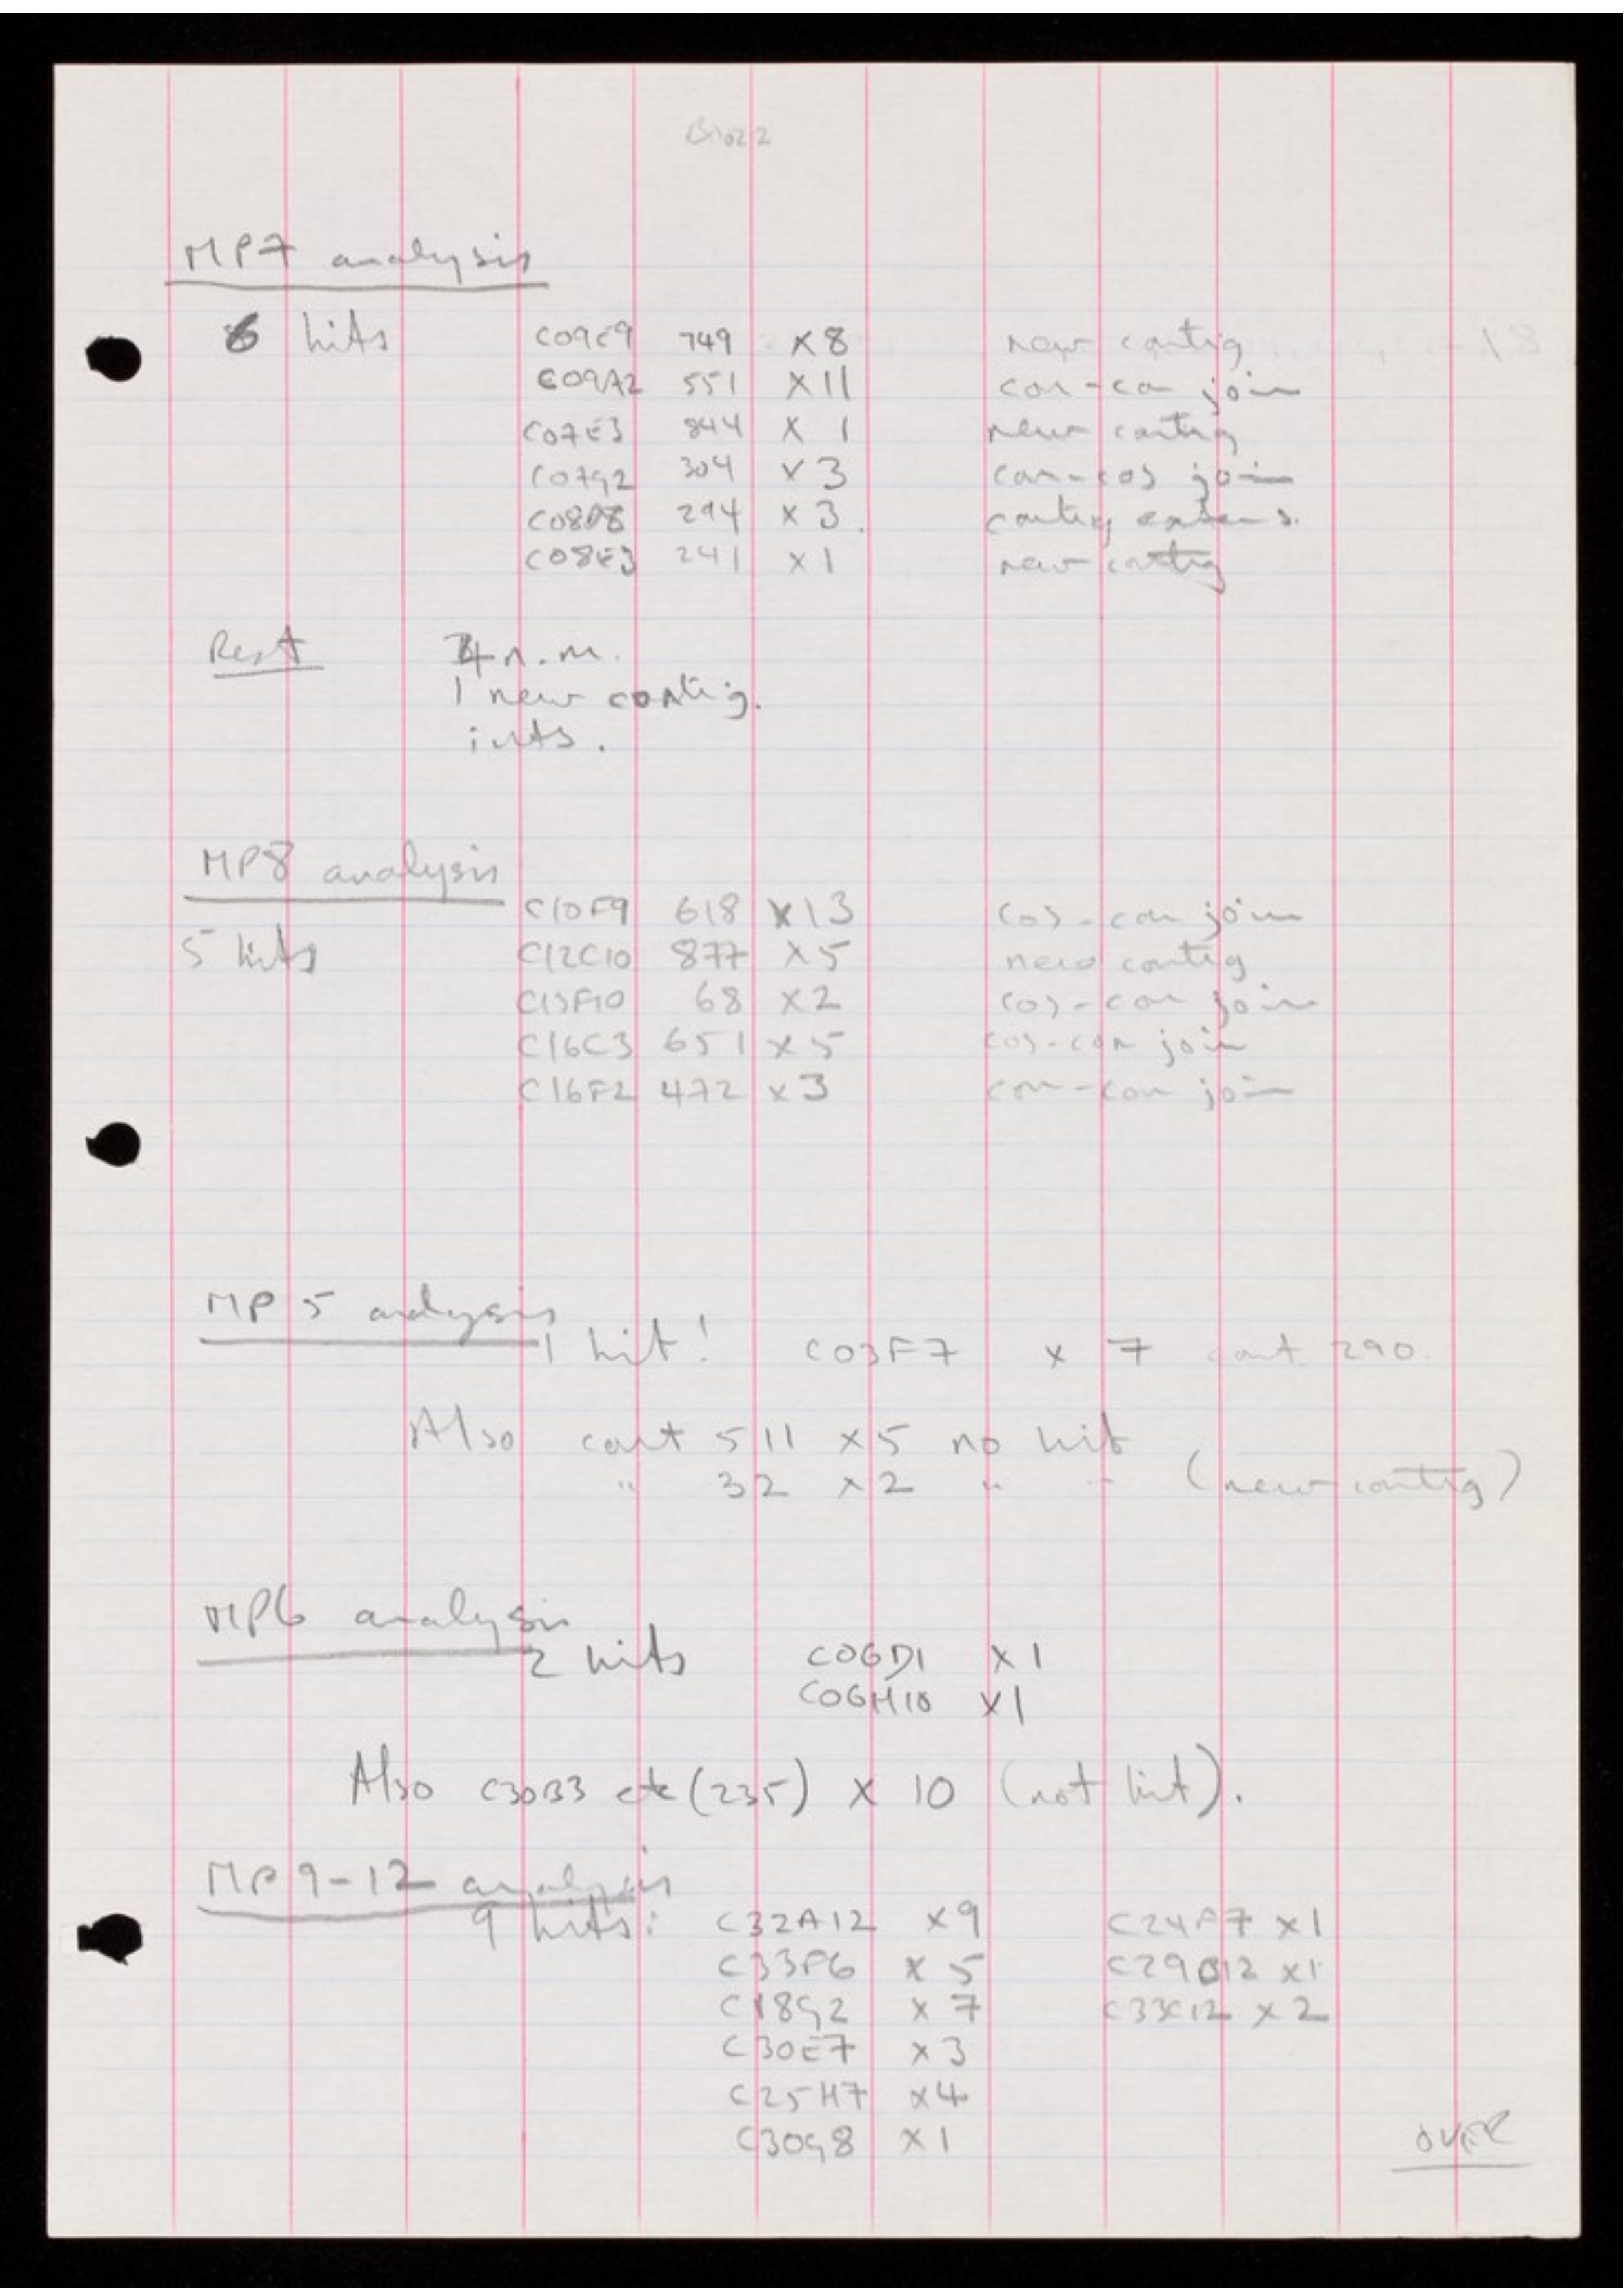 MP7 analysis
6 hits C09E9 749 x8 new contig
C09A2 551 x11 con-con join
C07E3 844 x 1 new contig
C07G2 304 x3 con-cos join
C08D8 294 x3. contig extens.
C08E3 241 x1 new contig
Rest 4 n.m.
1 new contig.
ints.
MP8 analysis
C10F9 618 x13 cos-con join
5 hits C12C10 877 x5 new contig
C13F10 68 x2 cos-con join
C16C3 651 x5 cos-con join
C16F2 472 x3 con-con join
MP5 analysis
1 hit! C03F7 x 7 cont 290.
Also cont 511 x5 no hit
" 32 x2 " " (new contig)
MP6 analysis
2 hits C06D1 x1
C06H10 x1
Also C30B3 etc (235) x 10 (not hit).
MP9-12 analysis
9 hits: C32A12 x9 C24F7 x1
C33F6 x 5 C29B12 x1
C18G2 x 7 C33C12 x 2
C30E7 x3
C25H7 x4
C30G8 x1
OVER